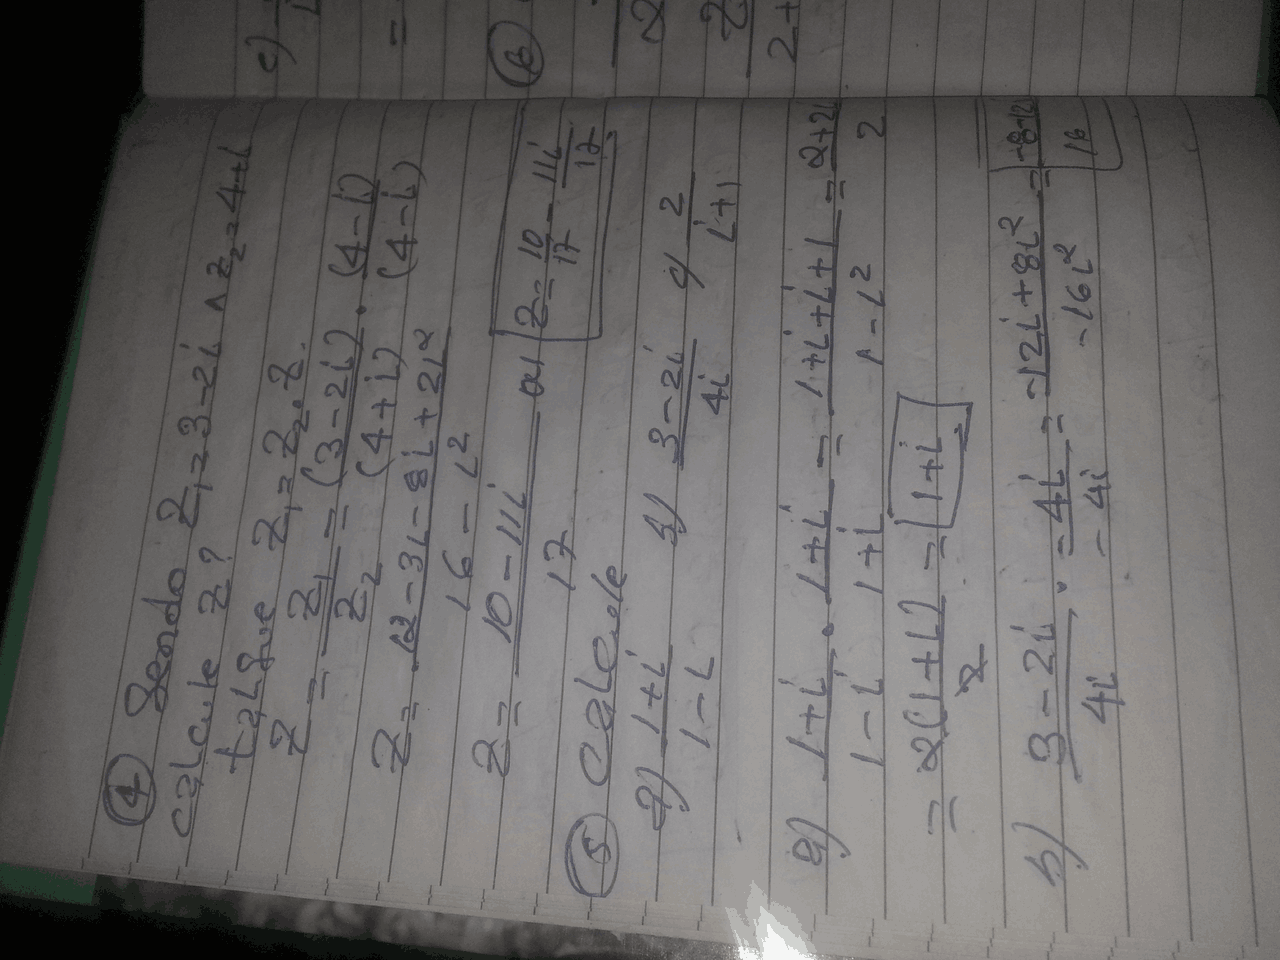 ④ Sendo Z₁=3-2i ∧ Z₂=4+i
calcule Z?
tal que Z₁=Z₂.Z.
Z = Z₁/Z₂ = (3-2i)/(4+i) . (4-i)/(4-i)
Z = (12-3i-8i+2i²)/(16-i²)
Z = (10-11i)/17 ou Z=10/17 - 11i/17
⑤ Calcule
a) (1+i)/(1-i) b) (3-2i)/4i c) 2/(i+1)
a) (1+i)/(1-i) . (1+i)/(1+i) = (1+i+i+1)/(1-i²) = (2+2i)/2
= 2(1+i)/2 = 1+i
b) (3-2i)/4i . (-4i)/(-4i) = (-12i+8i²)/(-16i²) = (-8-12)/16
c)
=
⑥
2
Z
2+